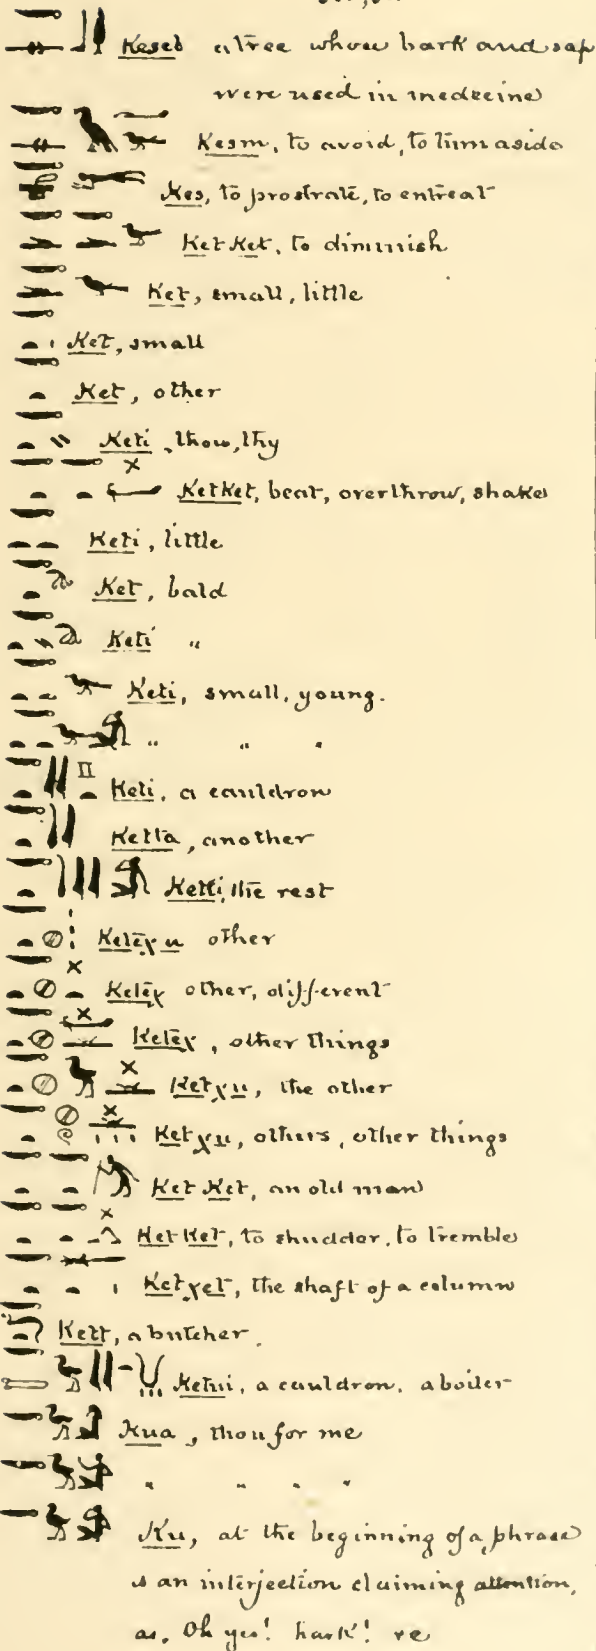 Keseb a tree whose bark and sap
were used in medecine
Kesm, to avoid, to turn aside
Kes, to prostrate, to entreat
Ket Ket, to diminish
Ket, small, little
Ket, small
Ket, other
Keti, thou, thy
KetKet, beat, overthrow, shake
Keti, little
Ket, bald
Keti "
Keti, small, young.
" " "
Keti, a cauldron
Ketta, another
Ketti, the rest
Ketexu other
Ketex other, different
Ketex, other things
Ketxu, the other
Ketxu, others, other things
Ket Ket, an old man
Ket Ket, to shudder, to tremble
Ketxet, the shaft of a column
Kett, a butcher.
Ketui, a cauldron, a boiler
Kua, thou for me
" " " "
Ku, at the beginning of a phrase
is an interjection claiming attention,
as, Oh yes! hark!